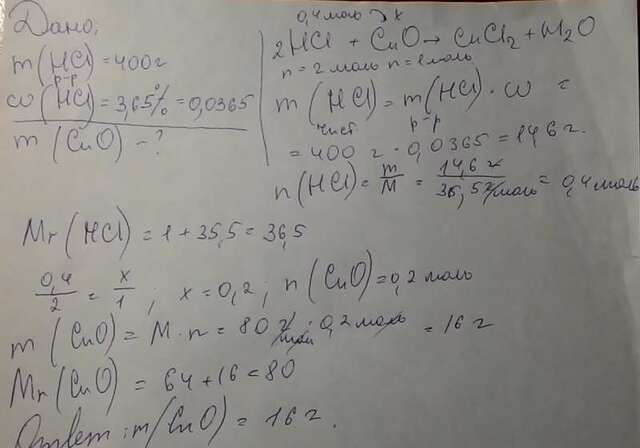 Дано:
m(HCl) = 400г
р-р
ω(HCl) = 3,65% = 0,0365
m(CuO) - ?
0,4моль x
2HCl + CuO → CuCl2 + H2O
n = 2 моль n = 1 моль
m(HCl) = m(HCl) · ω =
чист р-р
= 400 г · 0,0365 = 14,6 г.
n(HCl) = m/M = 14,6 г / 36,5 г/моль = 0,4 моль
Mr(HCl) = 1 + 35,5 = 36,5
0,4/2 = x/1 ; x = 0,2 ; n(CuO) = 0,2 моль
m(CuO) = M · n = 80 г/моль · 0,2 моль = 16 г
Mr(CuO) = 64 + 16 = 80
Ответ: m(CuO) = 16 г.